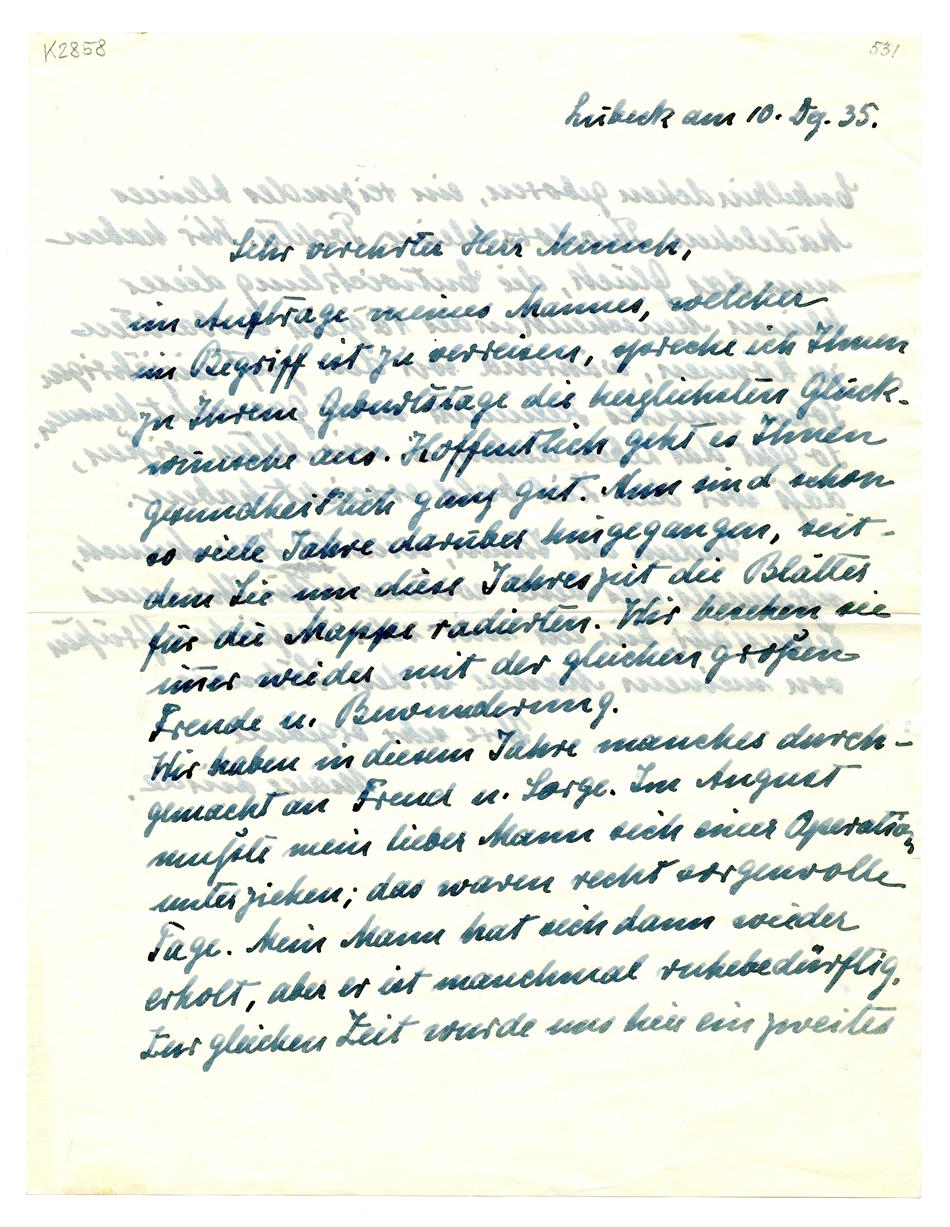 K2858
531
Lübeck am 10. Dez. 35.
Sehr verehrter Herr Munch,
im Auftrage meines Mannes, welcher
im Begriff ist zu verreisen, spreche ich Ihnen
zu Ihrem Geburtstage die herzlichsten Glück-
wünsche aus. Hoffentlich geht es Ihnen
gesundheitlich ganz gut. Nun sind schon
so viele Jahre darüber hingegangen, seit-
dem Sie um diese Jahreszeit die Blätter
für die Mappe radierten. Wir besehen sie
im̅er wieder mit der gleichen großen
Freude u. Bewunderung.
Wir haben in diesem Jahre manches durch-
gemacht an Freud u. Sorge. Im August
mußte mein lieber Mann sich einer Operation
unterziehen; das waren recht sorgenvolle
Tage. Mein Mann hat sich dann wieder
erholt, aber er ist manchmal ruhebedürftig.
Zur gleichen Zeit wurde uns hier ein zweites